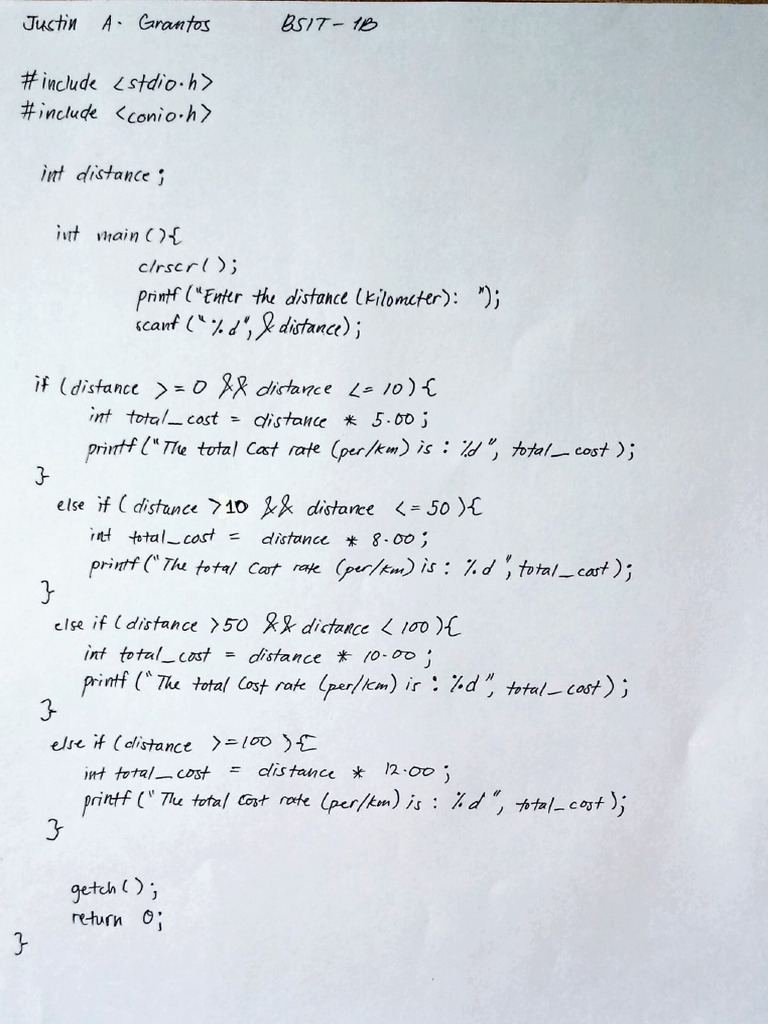 Justin A. Grantos BSIT - 1B
#include <stdio.h>
#include <conio.h>
int distance;
int main(){
clrscr();
printf("Enter the distance (kilometer): ");
scanf("%d", &distance);
if (distance >= 0 && distance <= 10){
int total_cost = distance * 5.00;
printf("The total Cost rate (per/km) is : %d", total_cost);
}
else if (distance >10 && distance <= 50){
int total_cost = distance * 8.00;
printf("The total Cost rate (per/km) is : %d", total_cost);
}
else if (distance >50 && distance < 100){
int total_cost = distance * 10.00;
printf("The total Cost rate (per/km) is : %d", total_cost);
}
else if (distance >=100 ){
int total_cost = distance * 12.00;
printf("The total Cost rate (per/km) is : %d", total_cost);
}
getch();
return 0;
}